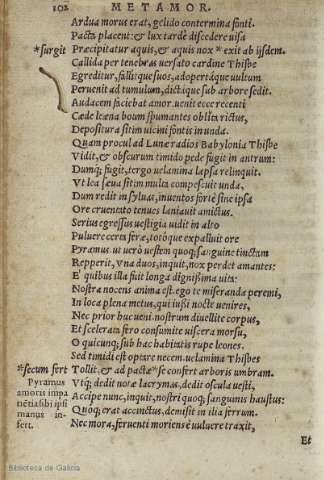 102 METAMOR.
Ardua morus erat, gelido contermina fonti.
Pacta placent: & lux tardè discedere uisa
*surgit Præcipitatur aquis, & aquis nox * exit ab ijsdem.
Callida per tenebras uersato cardine Thisbe
Egreditur, fallitq; suos, adopertáque uultum
Peruenit ad tumulum, dictáque sub arbore sedit.
Audacem faciebat amor. uenit ecce recenti
Cæde leæna boum spumantes oblita rictus,
Depositura sitim uicini fontis in unda.
Quam procul ad Lunæ radios Babylonia Thisbe
Vidit, & obscurum timido pede fugit in antrum:
Dumq; fugit, tergo uelamina lapsa relinquit.
Vt lea sæua sitim multa compescuit unda,
Dum redit in syluas, inuentos forte sine ipsa
Ore cruentato tenues laniauit amictus.
Serius egressus uestigia uidit in alto
Puluere certa feræ, totóque expalluit ore
Pyramus ut uerò uestem quoq; sanguine tinctam
Repperit, Vna duos, inquit, nox perdet amantes:
E' quibus illa fuit longa dignissima uita:
Nostra nocens anima est. ego te miseranda peremi,
In loca plena metus, qui iussi nocte uenires,
Nec prior huc ueni. nostrum diuellite corpus,
Et scelerata fero consumite uiscera morsu,
O quicunq; sub hac habitatis rupe leones.
Sed timidi est optare necem. uelamina Thisbes
*secum fert Tollit, & ad pactæ* se confert arboris umbram.
Pyramus Vtq; dedit notæ lacrymas, dedit oscula uesti,
amoris impa Accipe nunc, inquit, nostri quoq; sanguinis haustus:
tiẽtia sibi ipsi Quoq; erat accinctus, demisit in ilia ferrum.
manus in- Nec mora, feruenti moriens è uulnere traxit,
fert.
Et
Biblioteca de Galicia